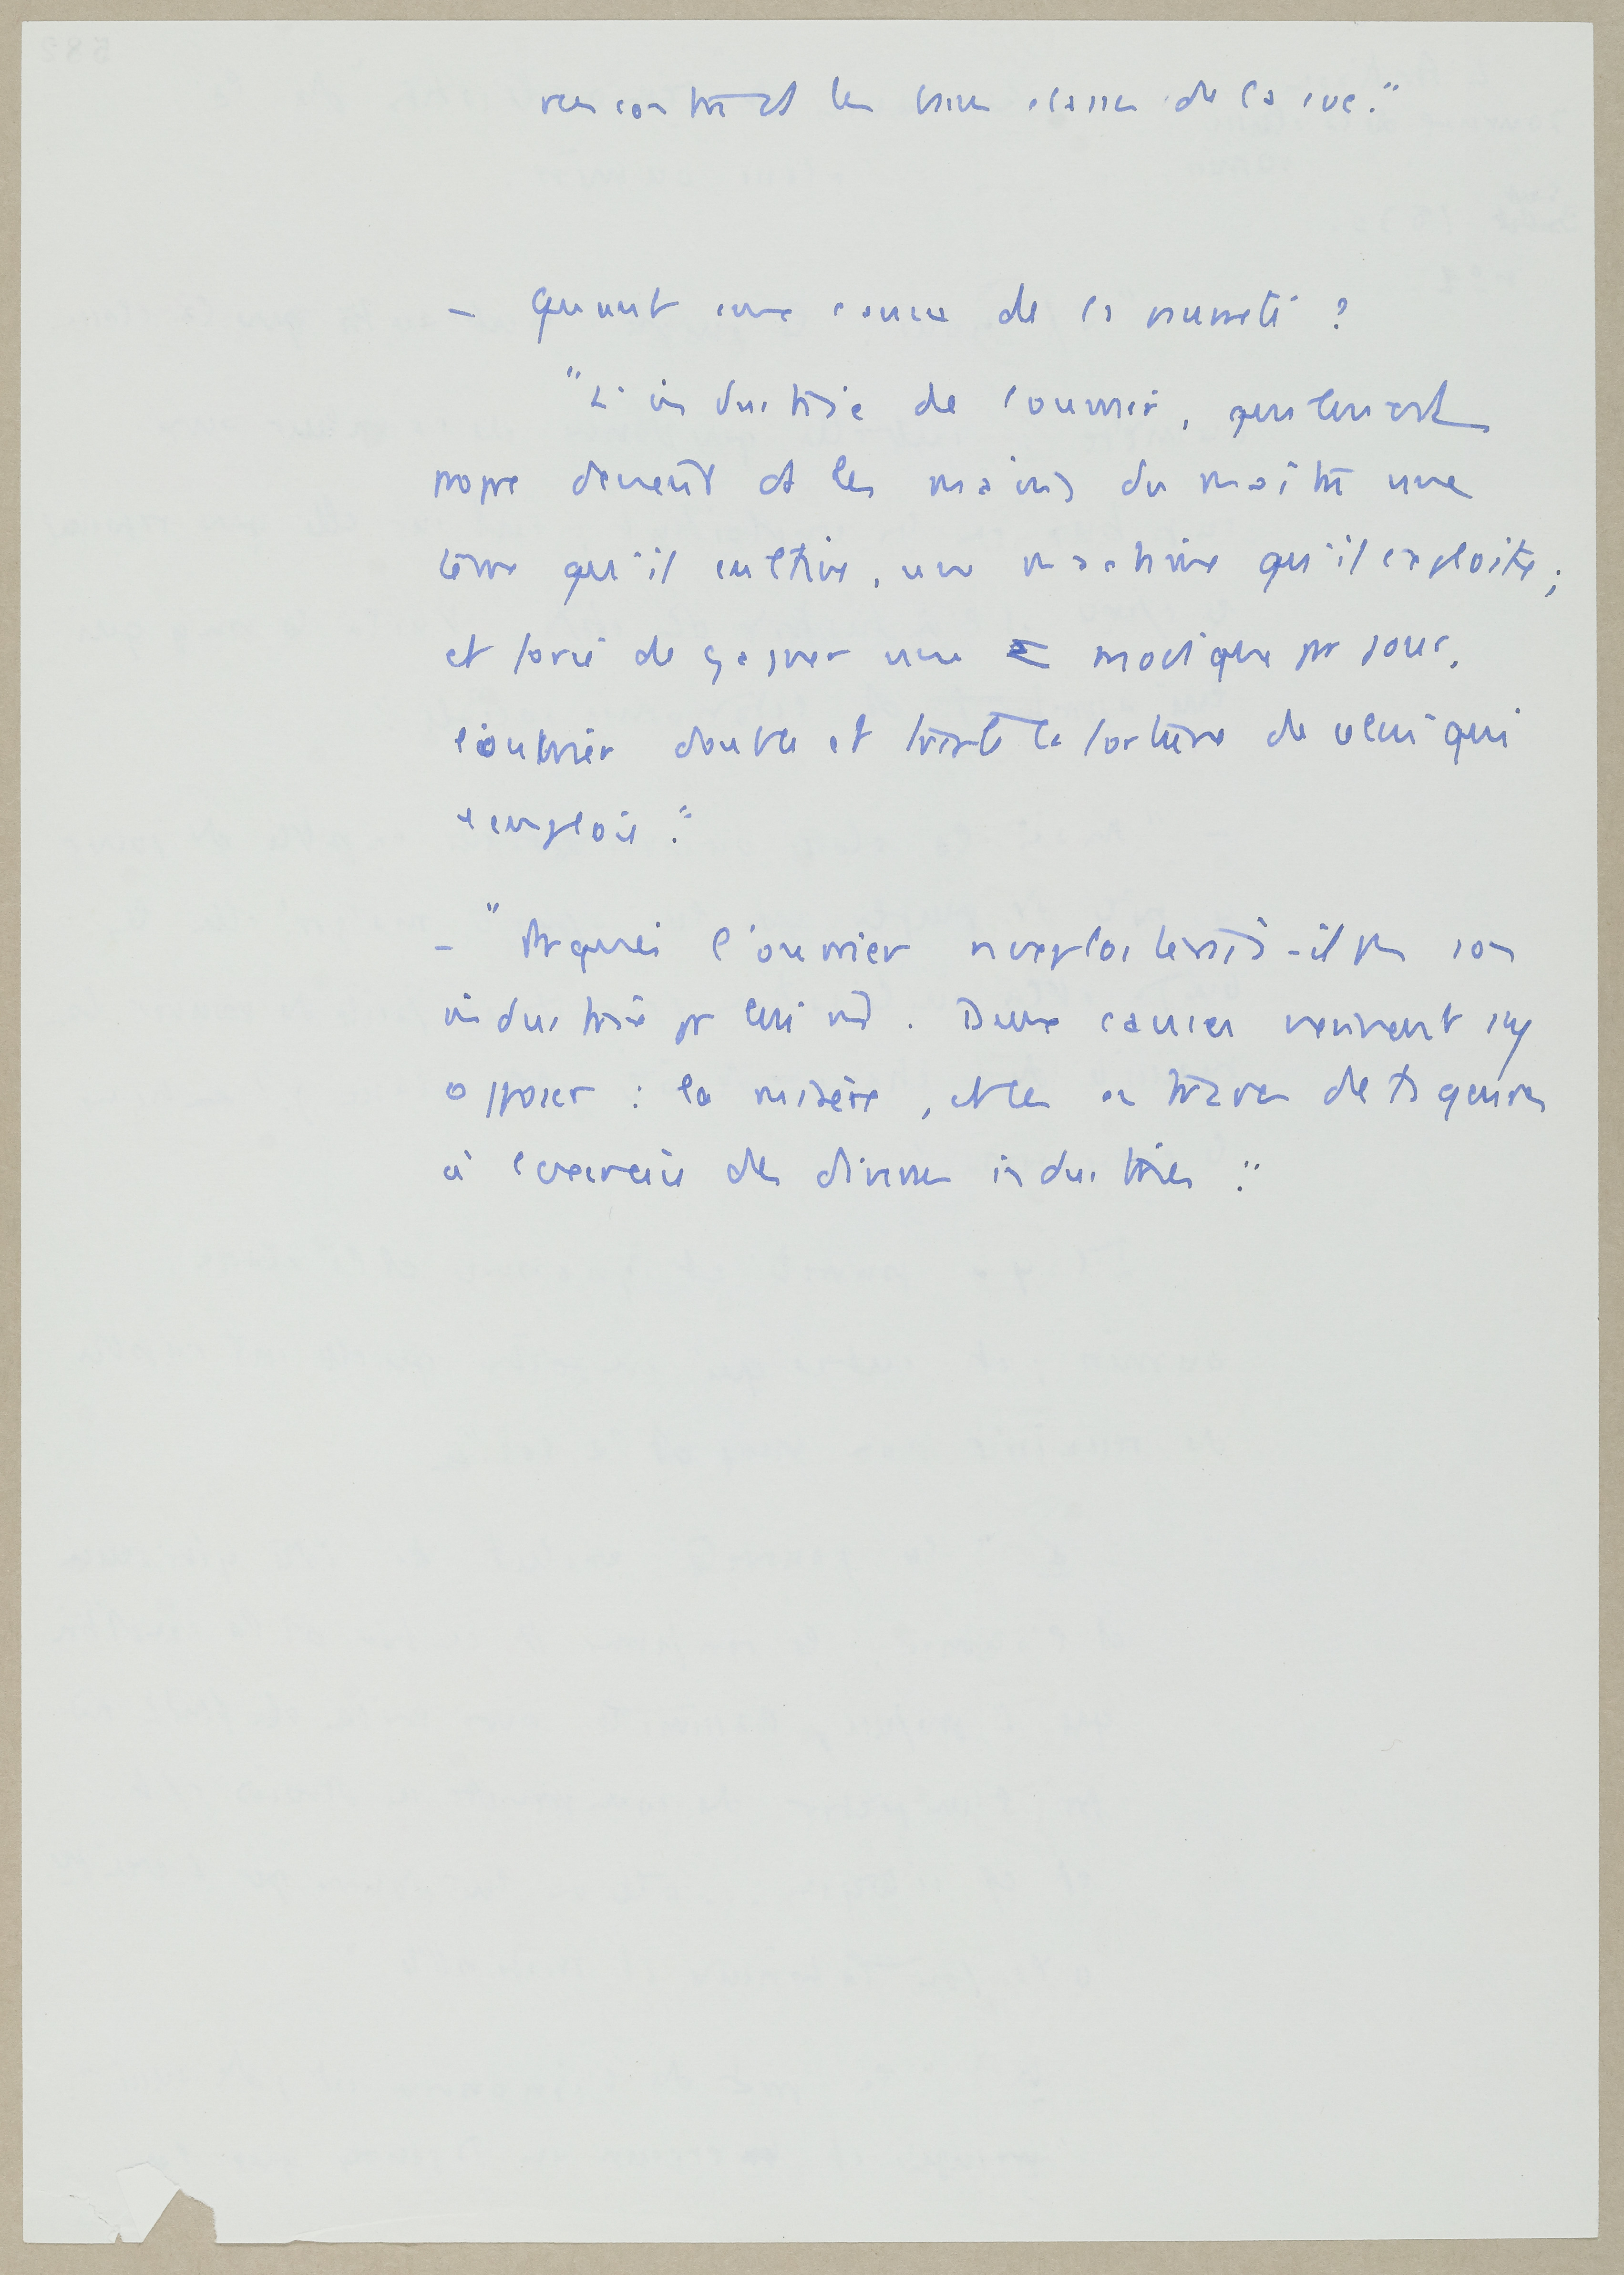 rencontrent les basses classes de la soc."
- Quant aux causes de la pauvreté ?
"L'industrie de l'ouvrier, qui lui est
propre devient ds les mains du maître une
terre qu'il cultive, une machine qu'il exploite ;
et forcé de gagner une modique pr jour,
l'ouvrier double et triple la fortune de celui qui
l'emploie."
- "Pr quoi l'ouvrier n'exploiterait-il pas son
industrie pr lui m̂. Deux causes viennent s'y
opposer : la misère, et les entraves de ts genres
à l'exercice des diverses industries."